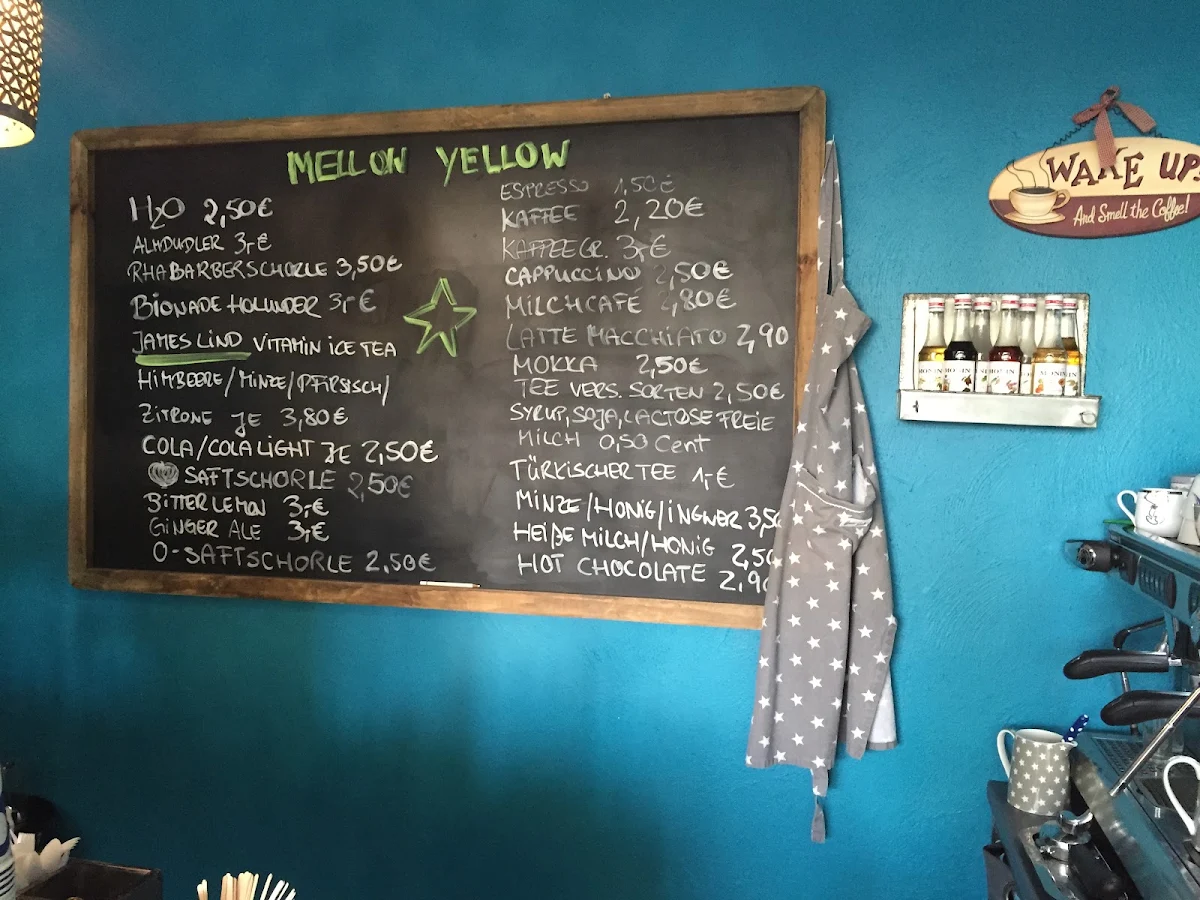 MELLOW YELLOW
H2O 2,50€
ALMDUDLER 3,-€
RHABARBERSCHORLE 3,50€
BIONADE HOLUNDER 3,-€
JAMES LIND VITAMIN ICE TEA
HIMBEERE/MINZE/PFIRSICH/
ZITRONE JE 3,80€
COLA/COLA LIGHT JE 2,50€
SAFTSCHORLE 2,50€
BITTER LEMON 3,-€
GINGER ALE 3,-€
O-SAFTSCHORLE 2,50€
ESPRESSO 1,50€
KAFFEE 2,20€
KAFFEE GR. 3,-€
CAPPUCCINO 2,50€
MILCHCAFÉ 2,80€
LATTE MACCHIATO 2,90
MOKKA 2,50€
TEE VERS. SORTEN 2,50€
SYRUP, SOJA, LACTOSE FREIE
MILCH 0,50 Cent
TÜRKISCHER TEE 1,-€
MINZE/HONIG/INGWER 3,50
HEIßE MILCH/HONIG 2,50
HOT CHOCOLATE 2,90
WAKE UP!
And Smell the Coffee!
MONIN MONIN MONIN MONIN